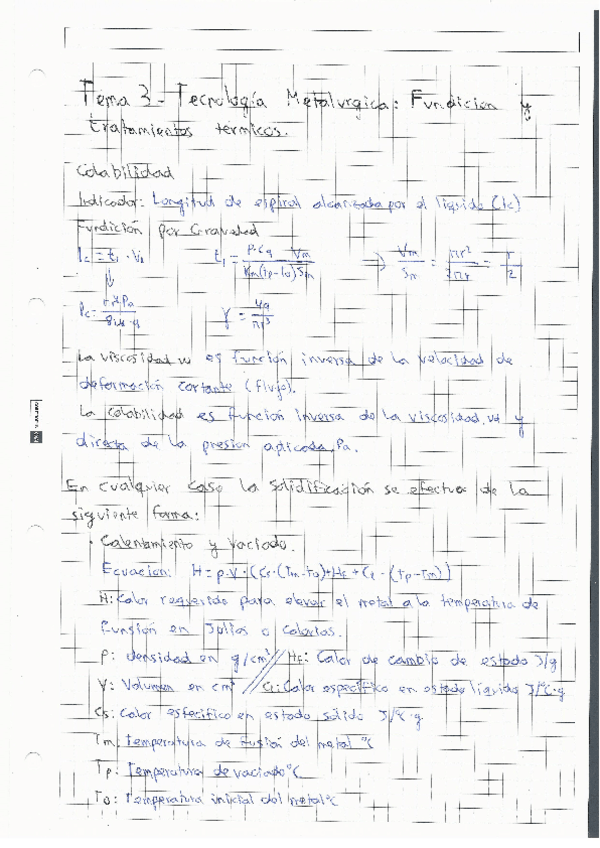 Tema 3 - Tecnología Metalurgica: Fundicion y
tratamientos térmicos.
Colabilidad
Indicador: Longitud de espiral alcanzada por el líquido (lc)
Fundición por Gravedad
Vm/Sm = πr²/2πr = r/2
γ = 4q/πr³
La viscosidad es función inversa de la velocidad de
deformación cortante (flujo).
La colabilidad es función inversa de la viscosidad y
directa de la presion aplicada, Pa.
En cualquier caso la solidificación se efectua de la
siguiente forma:
· Calentamiento y vaciado.
Ecuacion: H = ρ·V·[Cs·(Tm-To)+Hf+Cl·(Tp-Tm)]
H: Calor requerido para elevar el metal a la temperatura de
funsión en Julios o calorias.
ρ: densidad en g/cm³ // Hf: Calor de cambio de estado J/g
V: Volumen en cm³ // Cl: Calor especifico en estado líquido J/ºC·g
Cs: Calor esfecifico en estado sólido J/ºC·g
Tm: Temperatura de fusión del metal ºC
Tp: Temperatura de vaciado ºC
To: Temperatura inicial del metal ºC